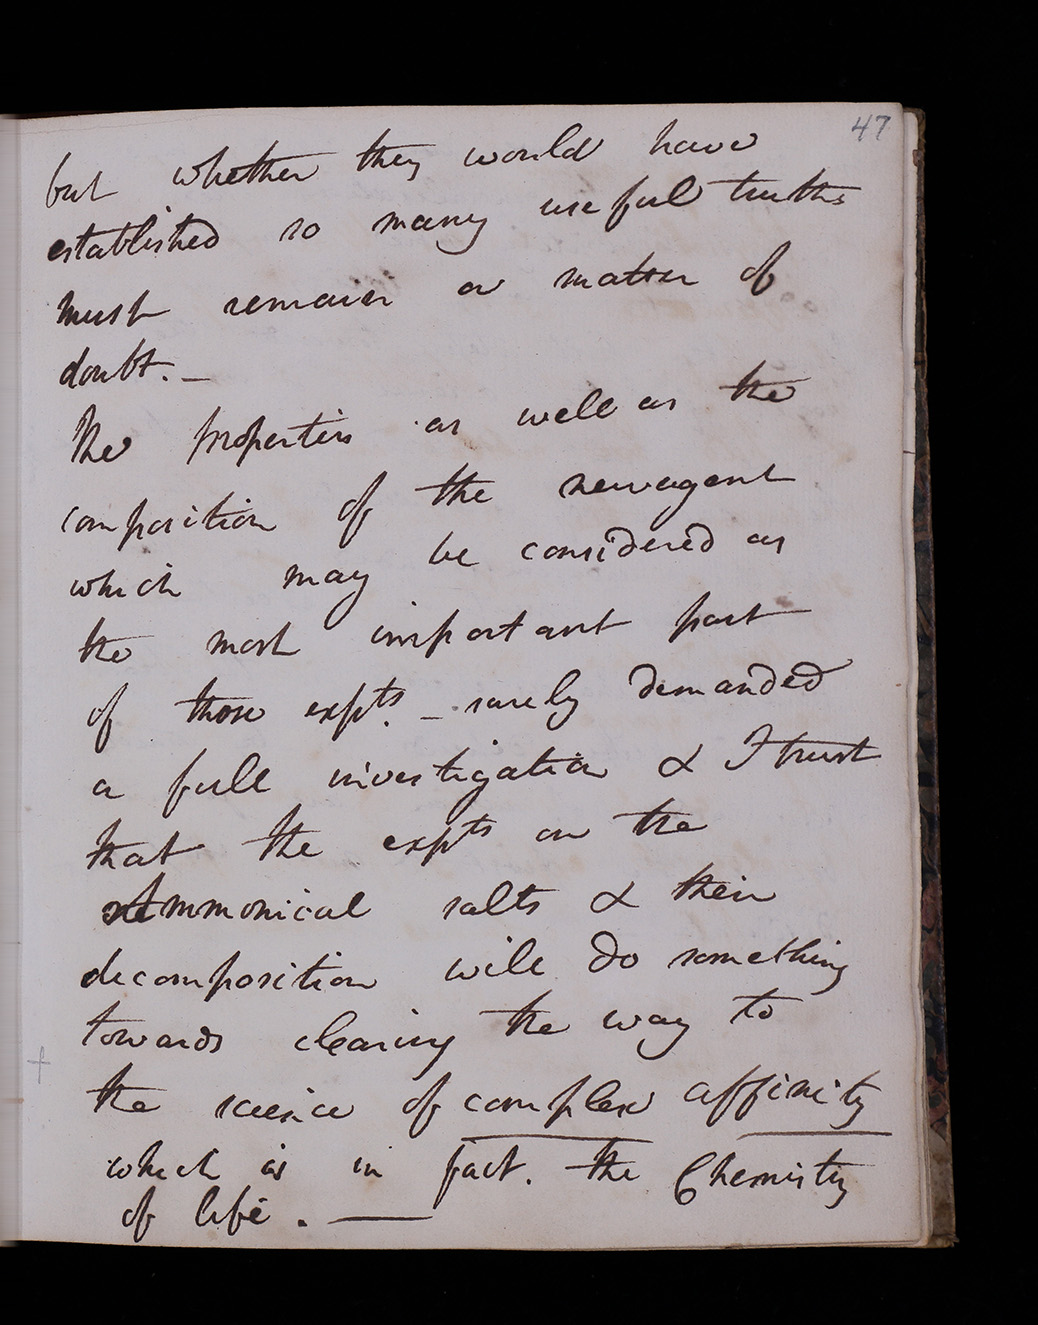 47
but whether they would have
established so many useful truths
must remain a matter of
doubt. —
The properties as well as the
composition of the new agent
which may be considered as
the most important part
of those expts. – surely demanded
a full investigation & I trust
that the expts on the
Ammonical salts & their
decomposition will do something
towards clearing the way to
the science of complex affinity
which is in fact. the Chemisty
of life. —